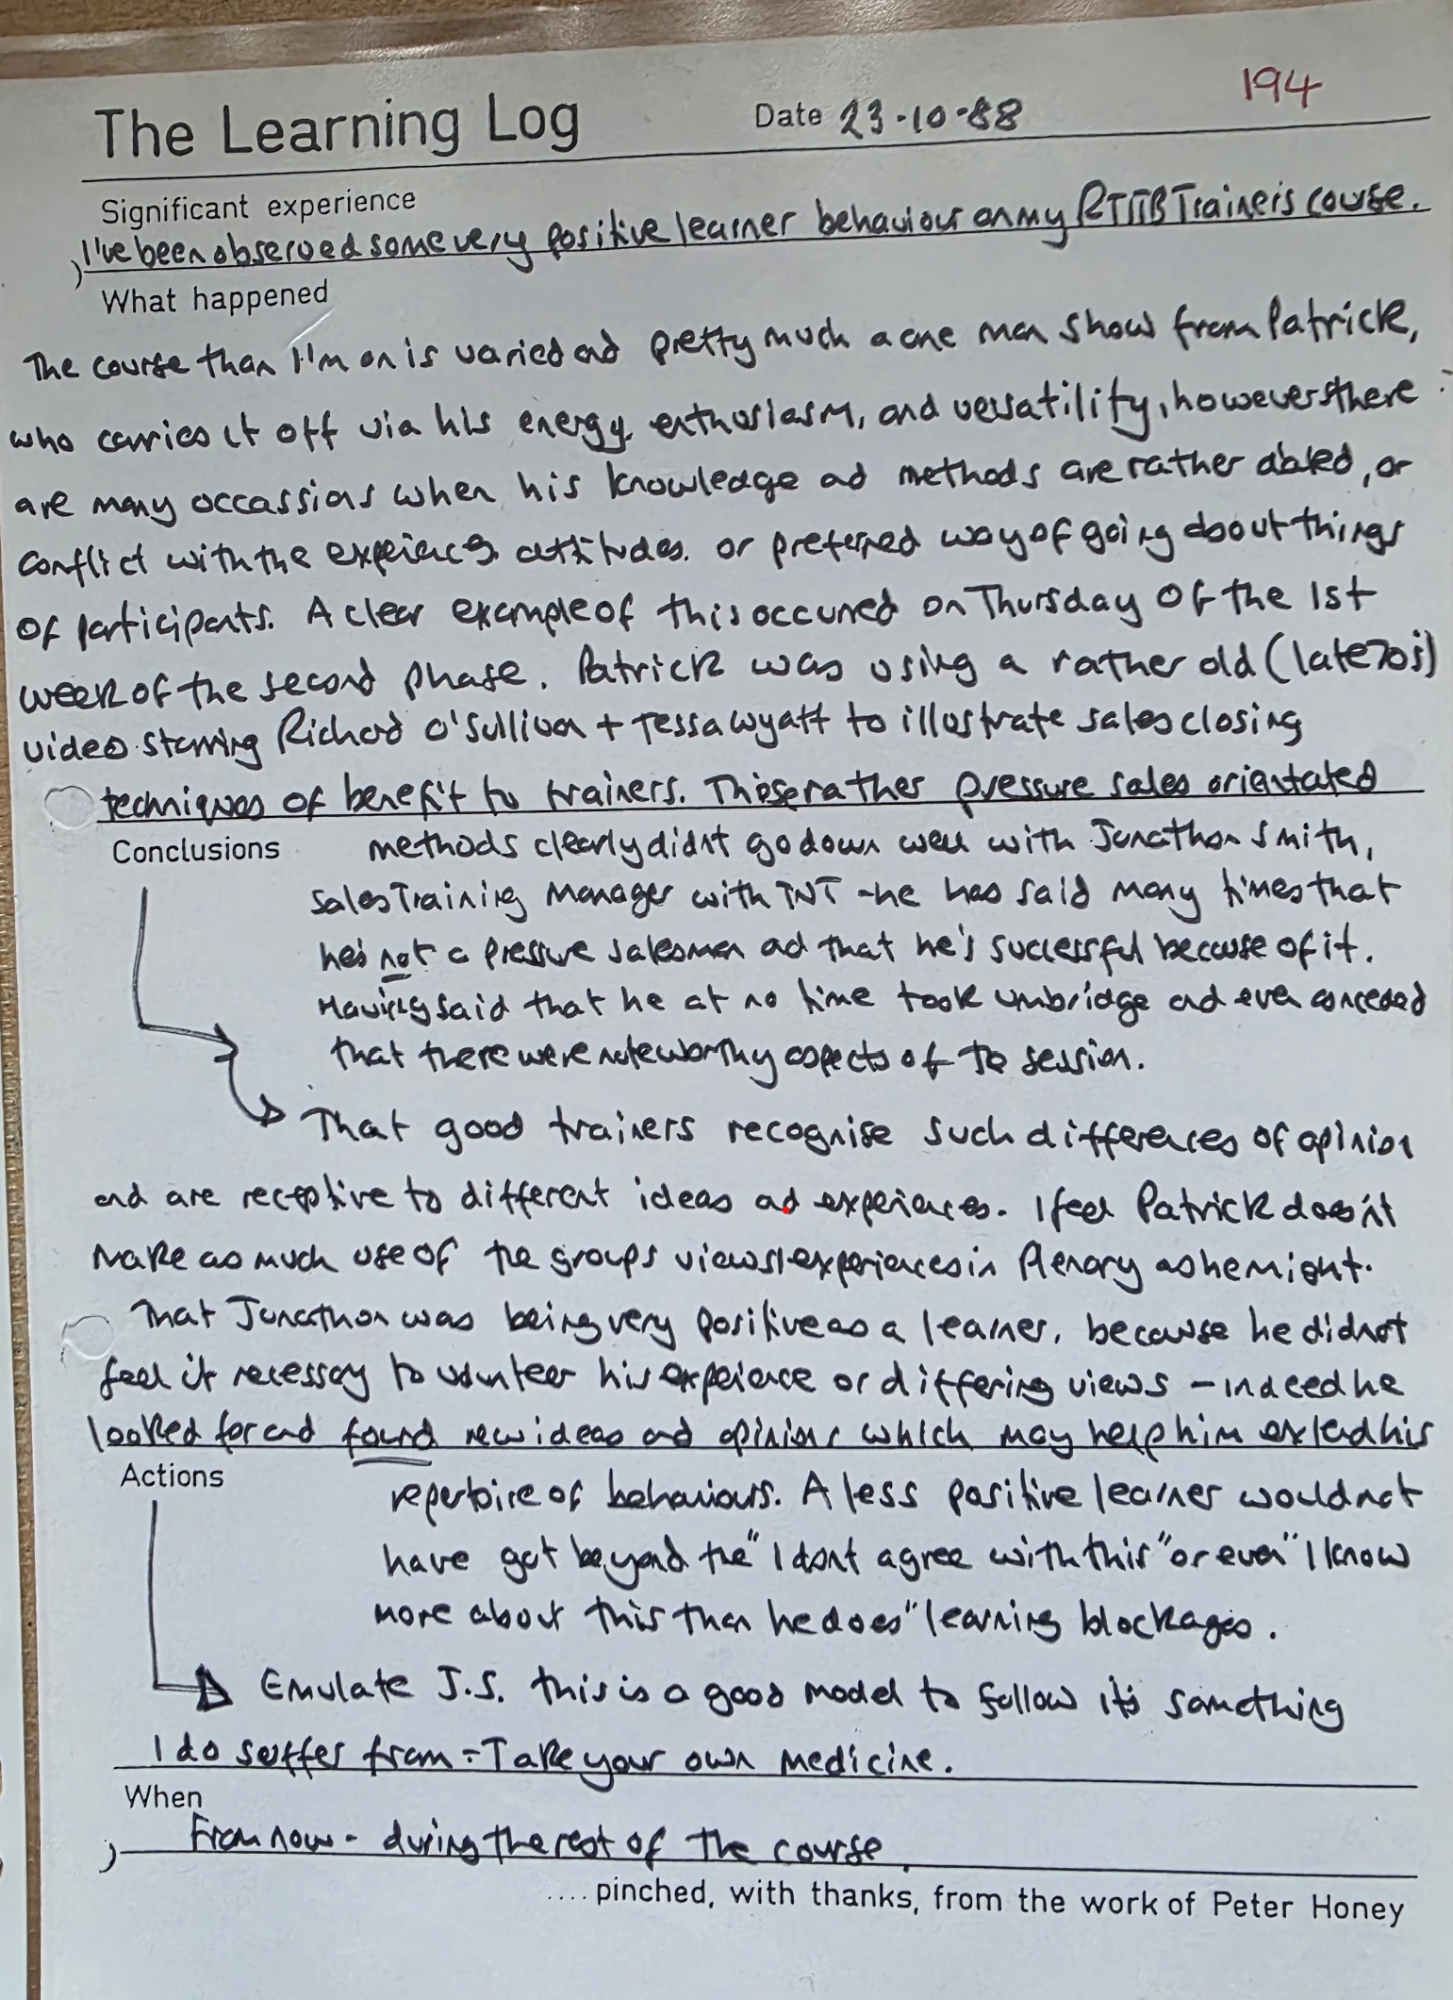 194
The Learning Log Date 23-10-88
Significant experience
I've been observed some very positive learner behaviour on my RTITB Trainers course.
What happened
The course than I'm on is varied and pretty much a one man show from Patrick,
who carries it off via his energy, enthusiasm, and versatility, however there
are many occassions when his knowledge and methods are rather dated, or
conflict with the experience, attitudes, or preferred way of going about things
of participants. A clear example of this occured on Thursday of the 1st
week of the second phase. Patrick was using a rather old (late 70s)
video starring Richard O'Sullivan + Tessa Wyatt to illustrate sales closing
techniques of benefit to trainers. Those rather pressure sales orientated
Conclusions methods clearly didn't go down well with Jonathon Smith,
Sales Training Manager with TNT - he has said many times that
he's not a pressure salesman and that he's successful because of it.
Having said that he at no time took umbridge and even conceded
that there were noteworthy aspects of the session.
That good trainers recognise such differences of opinion
and are receptive to different ideas and experiences. I feel Patrick doesn't
make as much use of the groups views/experiences in Plenary as he might.
That Jonathon was being very positive as a learner, because he did not
feel it necessary to volunteer his experience or differing views - indeed he
looked for and found new ideas and opinions which may help him extend his
Actions repertoire of behaviours. A less positive learner would not
have got beyond the "I dont agree with this" or even "I know
more about this than he does" learning blockages.
Emulate J.S. this is a good model to follow its something
I do suffer from - Take your own medicine.
When
From now - during the rest of the course.
.... pinched, with thanks, from the work of Peter Honey